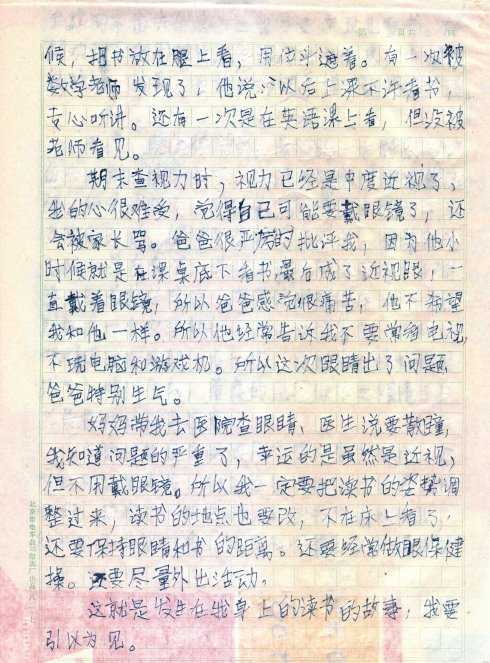 第 页共 页
候，把书放在腿上看，用位斗遮着。有一次被
数学老师发现了，他说：以后上课不许看书，
专心听讲。还有一次是在英语课上看，但没被
老师看见。
期末查视力时，视力已经是中度近视了，
我的心很难受，觉得自己可能要戴眼镜了，还
会被家长骂。爸爸很严厉的批评我，因为他小
时候就是在课桌底下看书，最后成了近视眼，一
直戴着眼镜，所以爸爸感觉很痛苦，他不希望
我和他一样。所以他经常告诉我不要常看电视，
不玩电脑和游戏机。所以这次眼睛出了问题，
爸爸特别生气。
妈妈带我去医院查眼睛，医生说要散瞳，
我知道问题的严重了，幸运的是虽然是近视，
但不用戴眼镜。所以我一定要把读书的姿势调
整过来，读书的地点也要改，不在床上看了，
还要保持眼睛和书的距离。还要经常做眼保健
操。还要尽量外出活动。
这就是发生在我身上的读书的故事，我要
引以为见。
北京市电车公司印刷厂出品